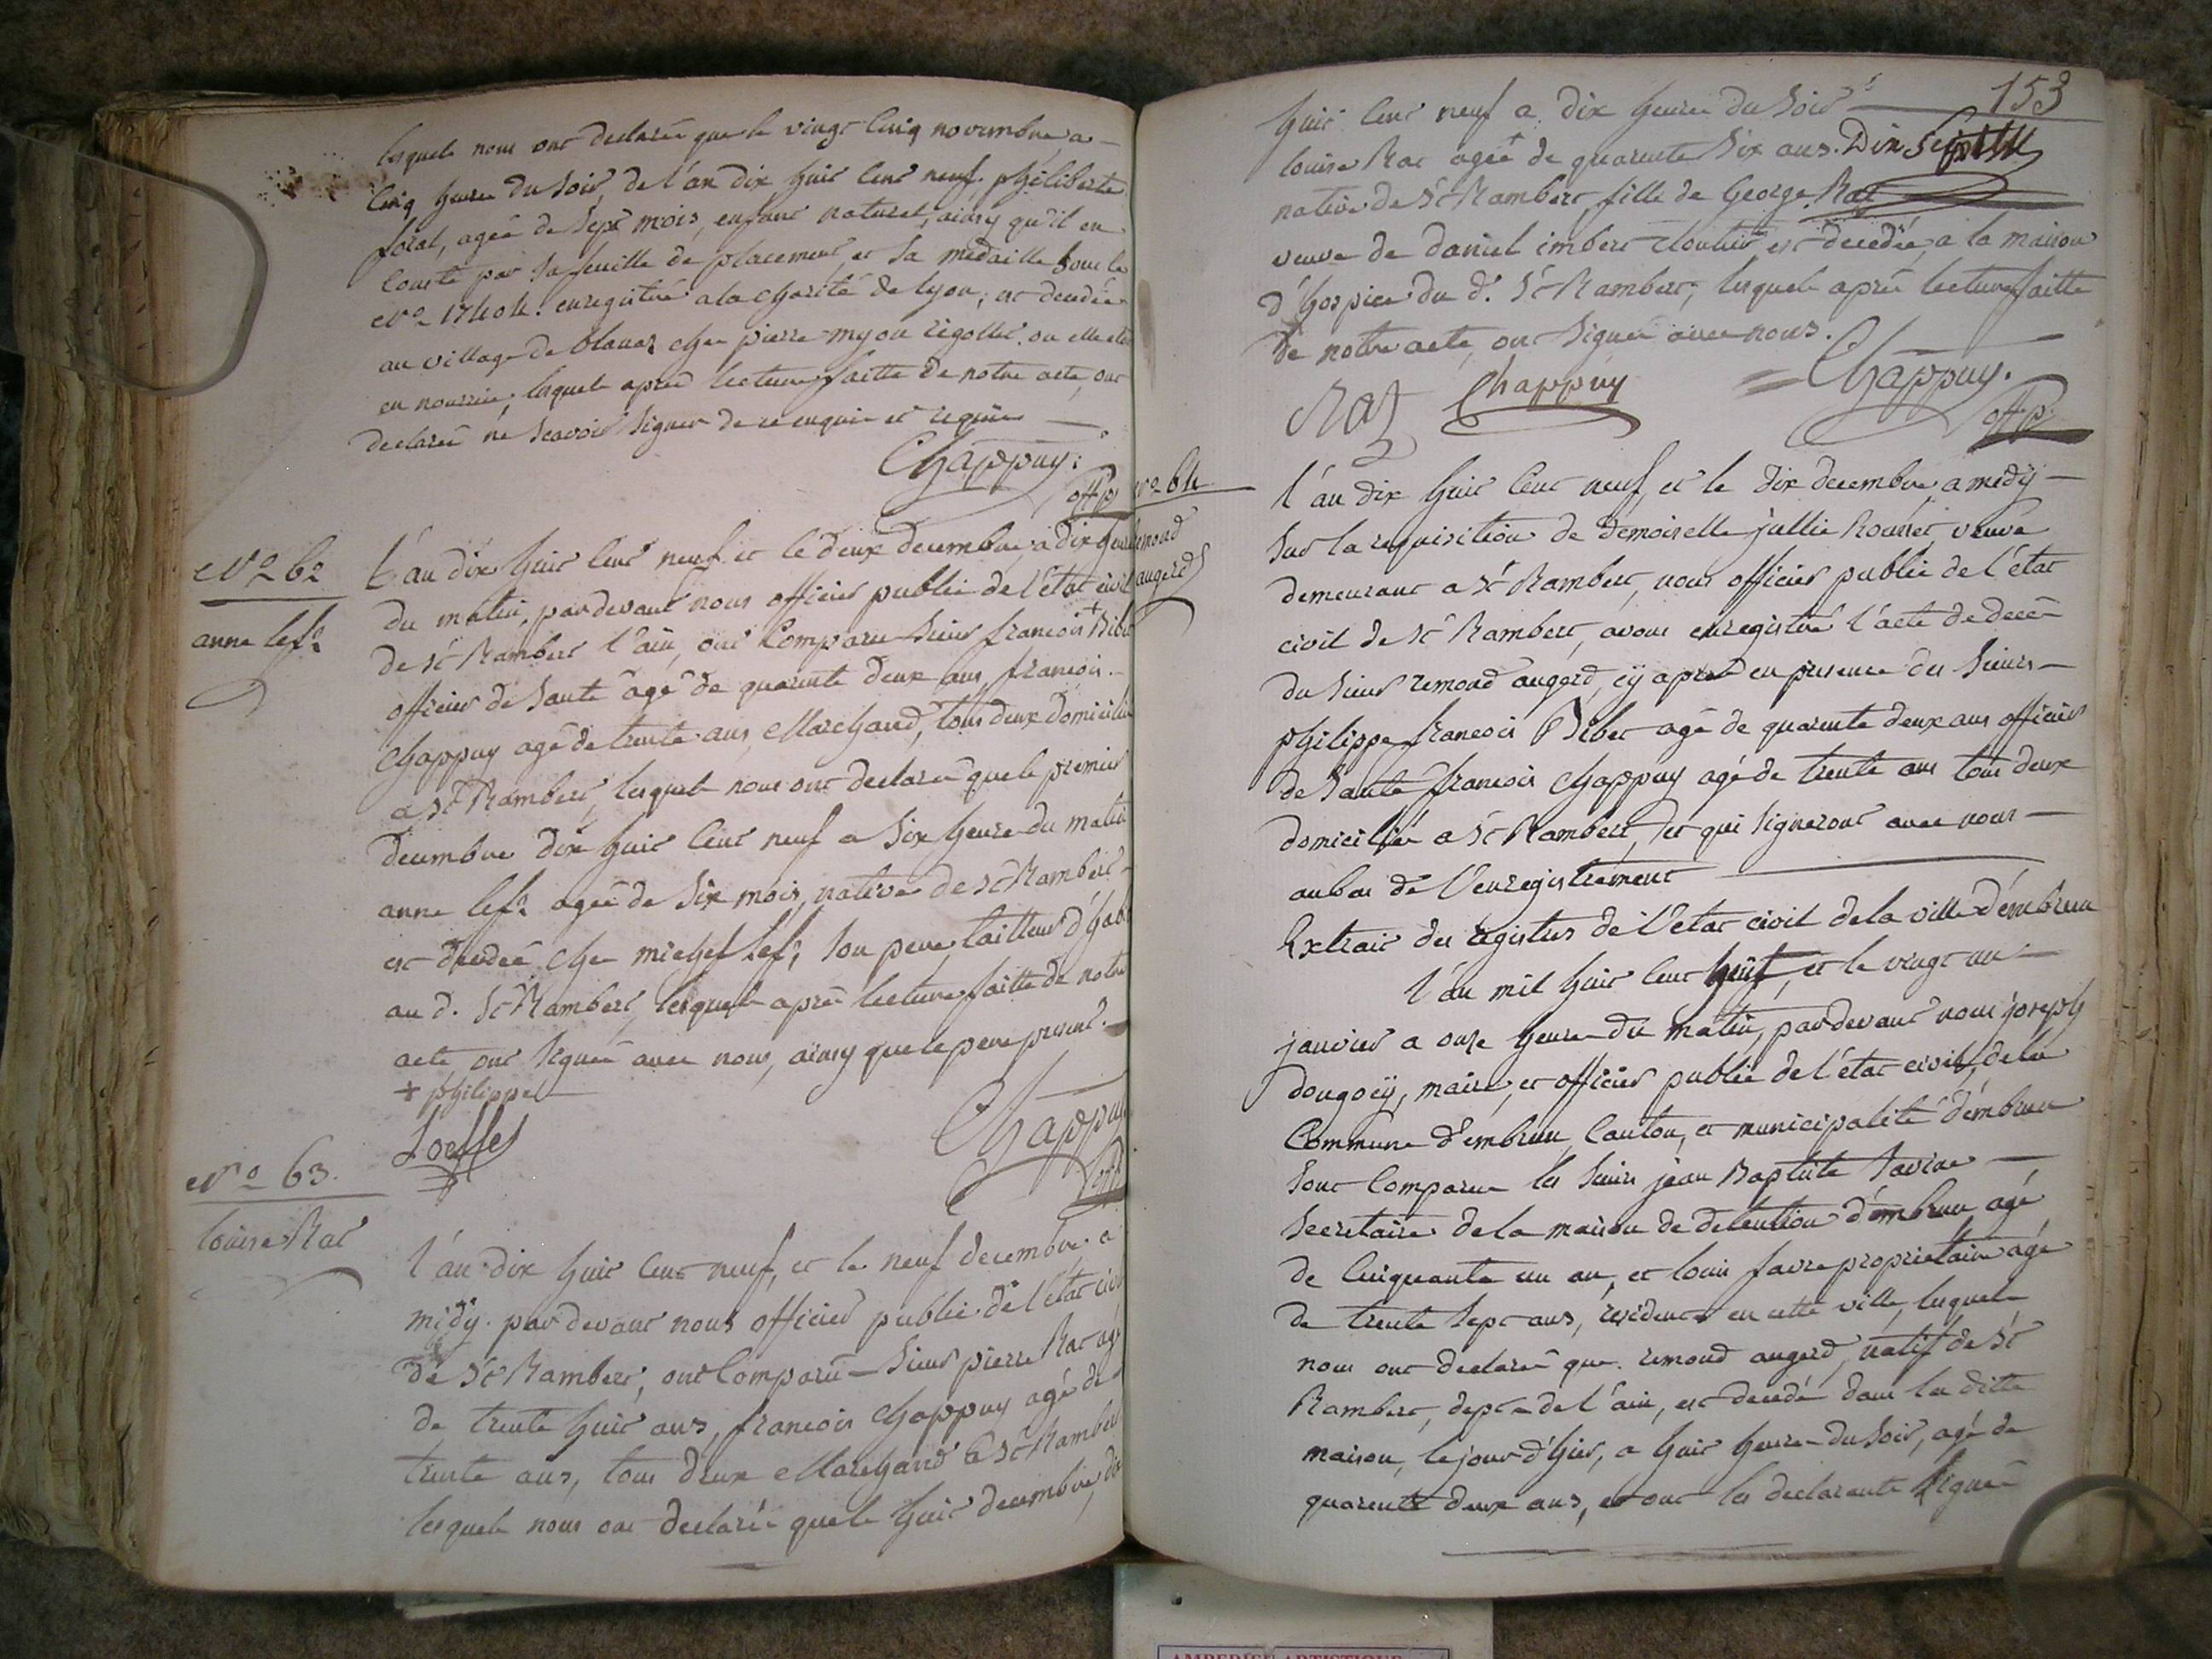 lesquels nous ont declaré que le vingt cinq novembre a
cinq heure du soir de l'an dix huit cent neuf. philiberte
forat, ageé de sept mois, enfant naturel, ainsy qu'il en
conste par sa feuille de placement et sa medaille sous le
N.o 17404. enregistré a la charité de lyon, est decedée
au village de blanaz chez pierre myon rigollet. ou elle etoit
en nourrice, lesquels apres lecture faitte de notre acte, ont
declaré ne scavoir signer de ce enquis et requis
Chappuy:
offp
N.o 62
anne lef
L'an dix huit cent neuf et le deux decembre, a dix heure
du matin, pardevant nous officier public de l'état civil
de St Rambert l'ain, ont comparu sieur francois + Bibet
officier de santé agé de quarante deux ans, francois
Chappuy agé de trente ans, Marchand, tous deux domiciliés
a St Rambert, lesquels nous ont declaré que le premier
decembre dix huit cent neuf a six heure du matin
anne lef ageé de six mois, native de St Rambert
est decedeé chez michel Lef, son pere tailleur d'habit
au d. St Rambert, lesquels aprés lecture faitte de notre
acte, ont signé avec nous, ainsy que le pere present.
+ philippe
Loeffel
Chappuy
offp
N.o 63.
louise Rat
l'an dix huit cent neuf, et le neuf decembre a
midy. pardevant nous officier public de l'état civil
de St Rambert, ont comparu sieur pierre Rat agé
de trente huit ans, francois Chappuy agé de
trente ans, tous deux Marchand a St Rambert
lesquels nous ont declaré que le huit decembre, dix
153
huit cent neuf a dix heure du soir
louise Rat ageé + de quarente six ans. Dix Sept
native de St Rambert, fille de George Rat
veuve de daniel imbert cloutier est decedeé, a la maison
d'hospice du d. St Rambert, lesquels aprés lecture faitte
de notre acte, ont signé avec nous.
Rat
Chappuy
Chappuy.
offp.
N.o 64
remond
augerd
l'an dix huit cent neuf, et le dix decembre, a midy
sur la requisition de demoiselle jullie Rousset, veuve
demeurant a St Rambert, nous officier public de l'état
civil de St Rambert, avons enregistré l'acte de decés
du sieur remond augerd, cy aprés en presence des sieurs
philippe francois Bibet agé de quarente deux ans officier
de santé francois chappuy agé de trente ans tous deux
domicilié a St Rambert, et qui signeront avec nous
au bas de l'enregistrement
Extrait des registres de l'etat civil de la ville d'émbrun
l'an mil huit cent huit, et le vingt un
janvier a onze heure du matin, pardevant nous joseph
dongoiÿ, maire, et officier public de l'état civil, de la
Commune d'embrun, Canton, et municipalité d'embrun
sont comparu les sieurs jean Baptiste Savine
secretaire de la maison de detention d'émbrun agé
de cinquante un an, et louis favre proprietaire agé
de trente sept ans, residents en cette ville, lesquels
nous ont declaré que. remond augerd, natif de St
Rambert, dept de l'ain, est decedé dans la ditte
maison, le jour d'hier, a huit heure du soir, agé de
quarente deux ans, et ont les declarants signé
AMBERIEU ARTISTIQUE